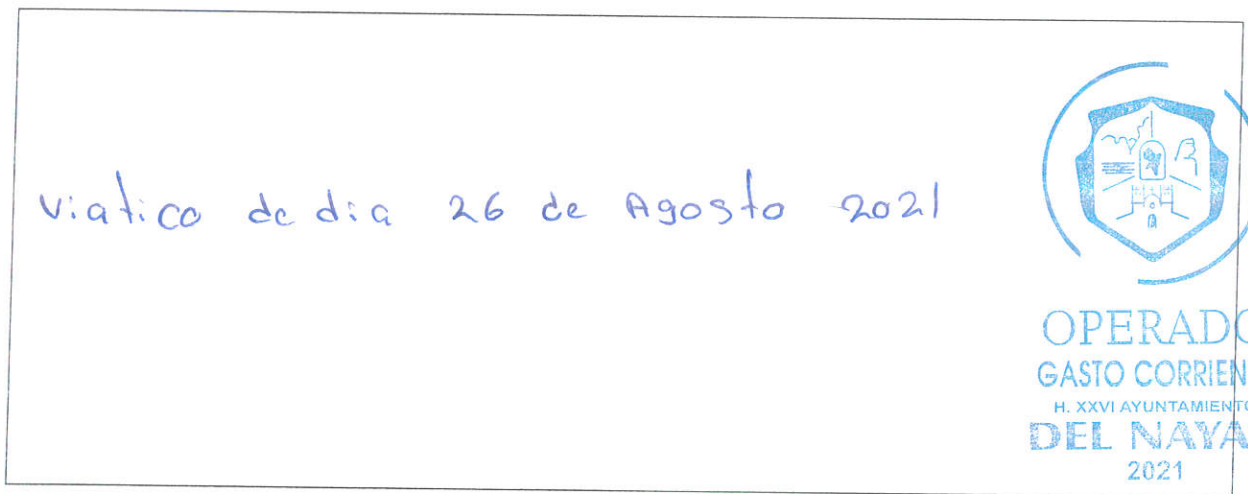 Viatico de dia 26 de Agosto 2021
OPERADO
GASTO CORRIEN
H. XXVI AYUNTAMIENTO
DEL NAYA
2021